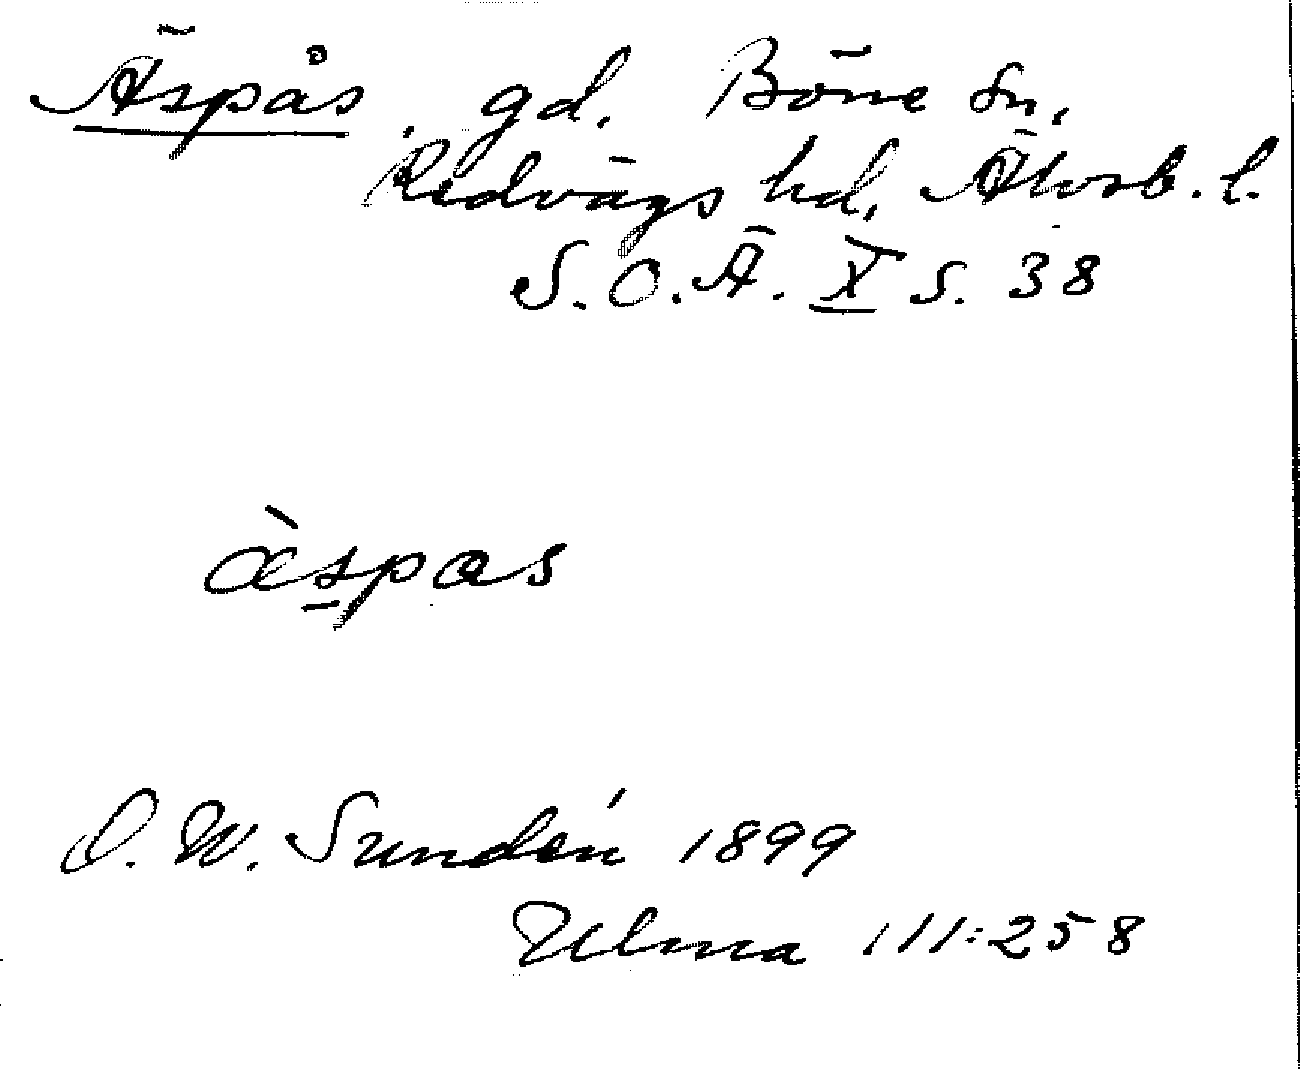 Äspås, gd. Böne sn,
Redvägs hd, Älvsb. l.
S. O. Ä. X s. 38
æ̀s̱pas
D. W. Sundén 1899
Ulma 111:258